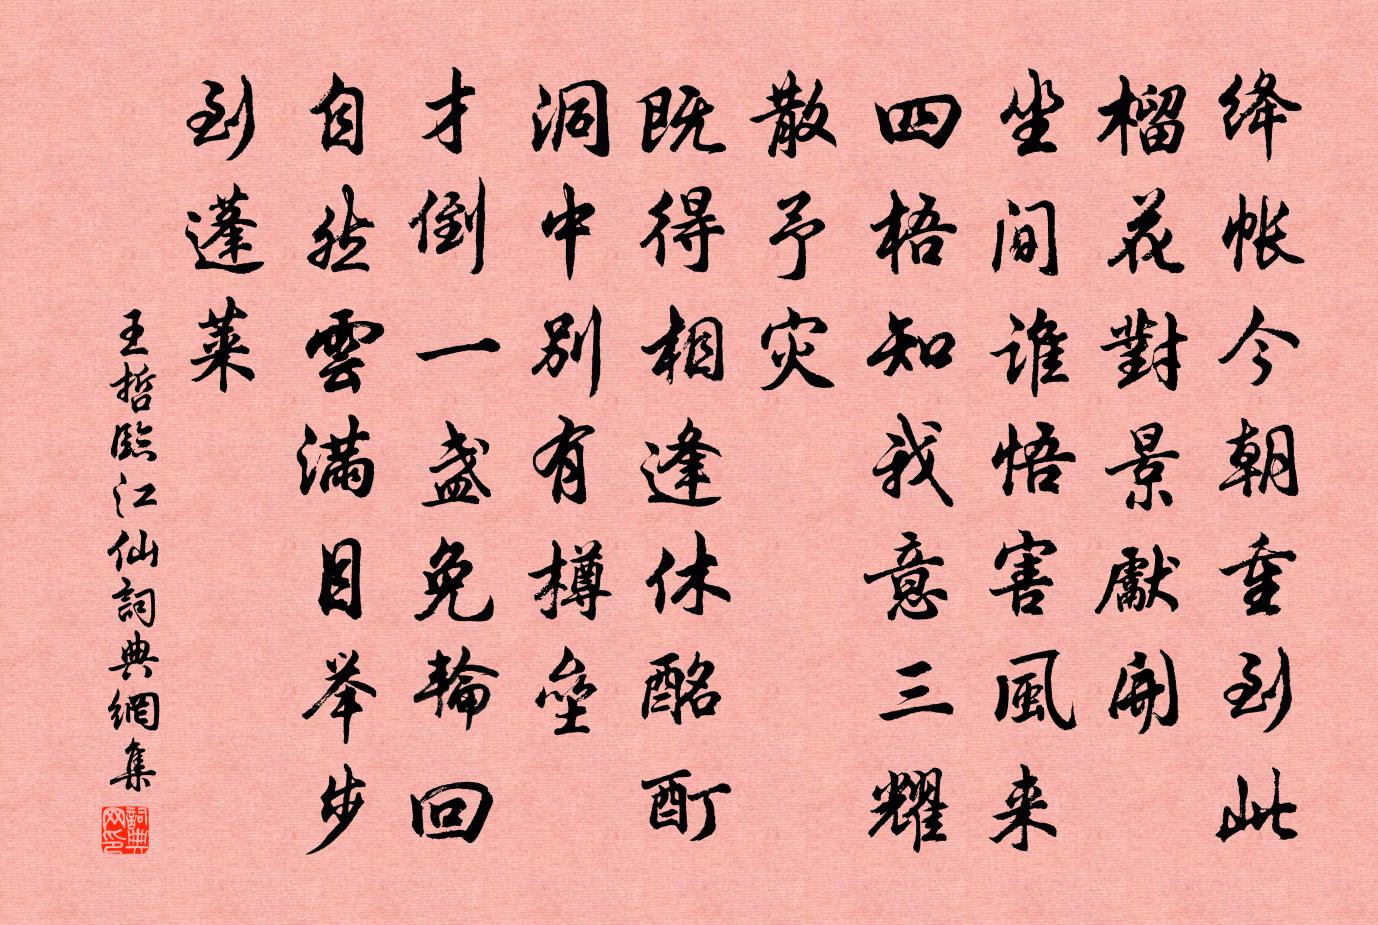 绛帐今朝重到此
榴花對景獻開
坐间谁悟害風来
四梧知我意三耀
散予灾
既得相逢休酩酊
洞中别有樽壘
才倒一盏免輪回
自然雲满目举步
到蓬莱
王哲臨江仙詞典網集
詞典网印